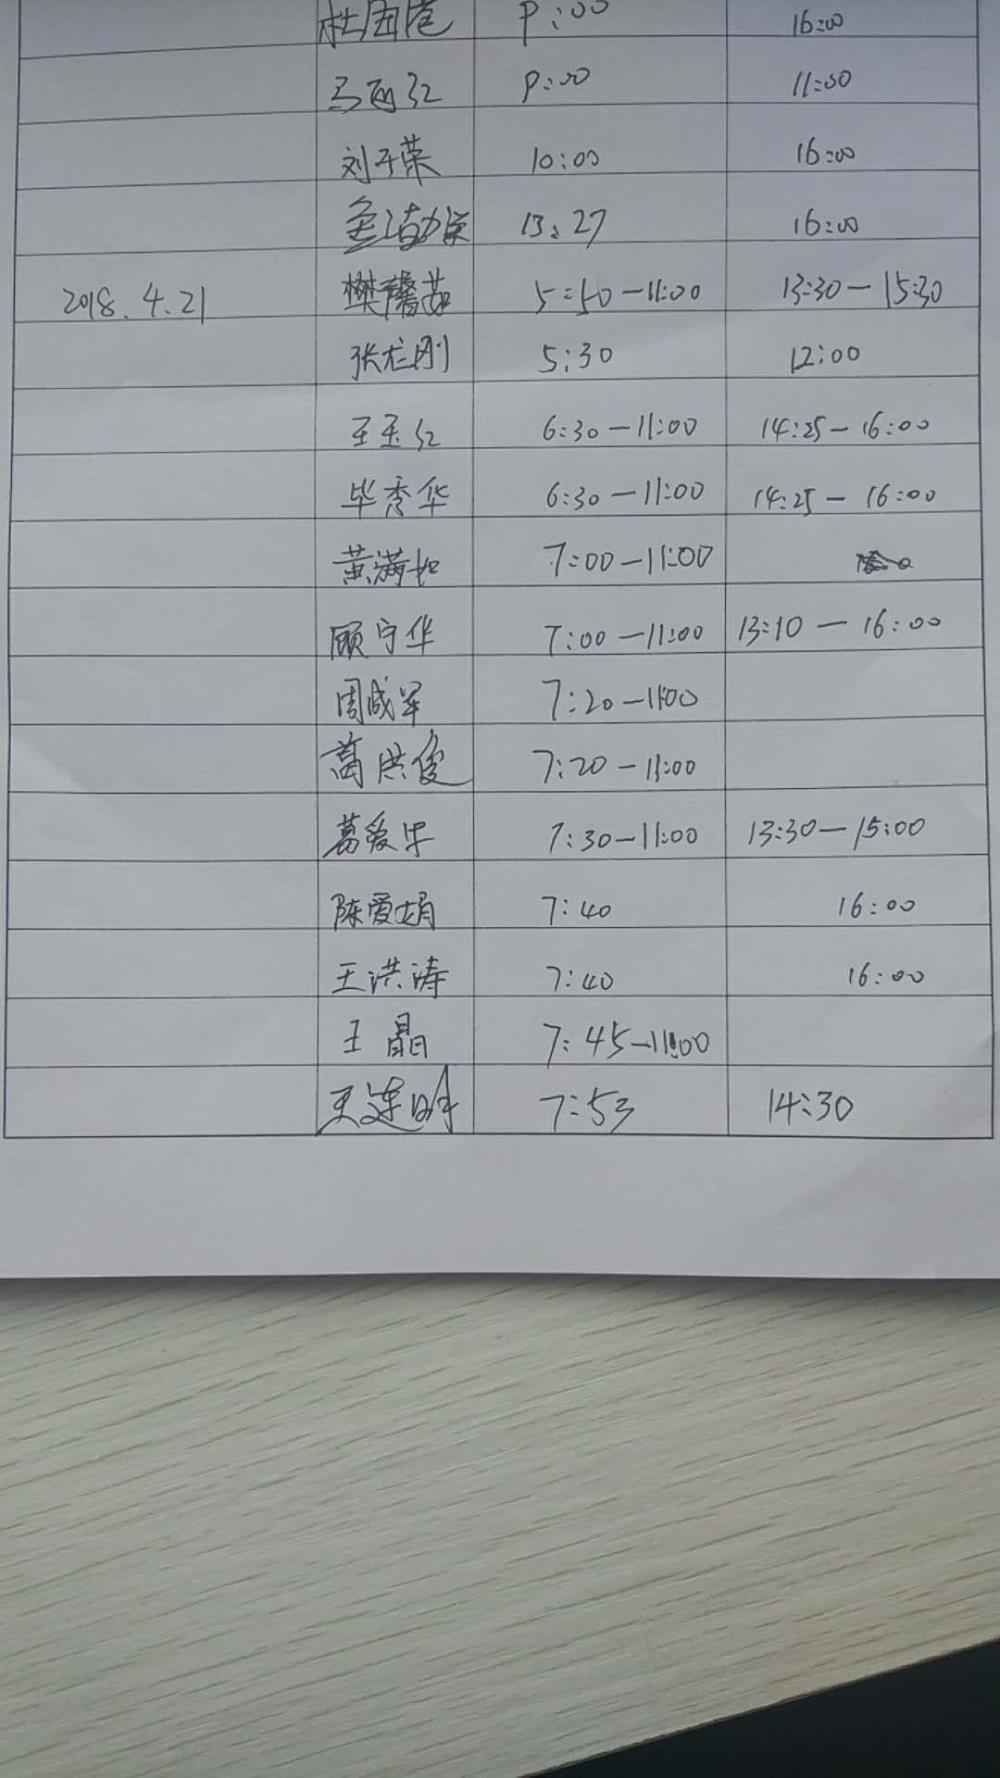 杜 P:00 16:00
马西红 P:00 11:00
刘子荣 10:00 16:00
13:27 16:00
2018.4.21 樊馨茹 5:50-11:00 13:30-15:30
张龙刚 5:30 12:00
王玉红 6:30-11:00 14:25-16:00
毕秀华 6:30-11:00 14:25-16:00
黄满如 7:00-11:00
顾守华 7:00-11:00 13:10-16:00
周成军 7:20-11:00
葛洪俊 7:20-11:00
葛爱华 7:30-11:00 13:30-15:00
陈爱娟 7:40 16:00
王洪涛 7:40 16:00
王晶 7:45-11:00
王连明 7:53 14:30